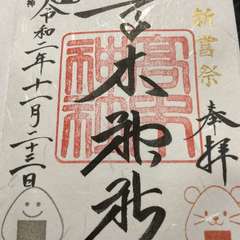 新嘗祭
奉拝
高木神社
高木神社
令和二年十一月二十三日
神